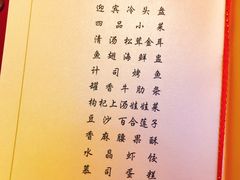 迎宾冷头盘
四品小菜
清汤松茸金耳
鱼翅海鲜盅
计司烤鱼
罐香牛肋条
枸杞上汤娃娃菜
豆沙百合莲子
香麻腰果酥
水晶虾饺
慕司蛋糕